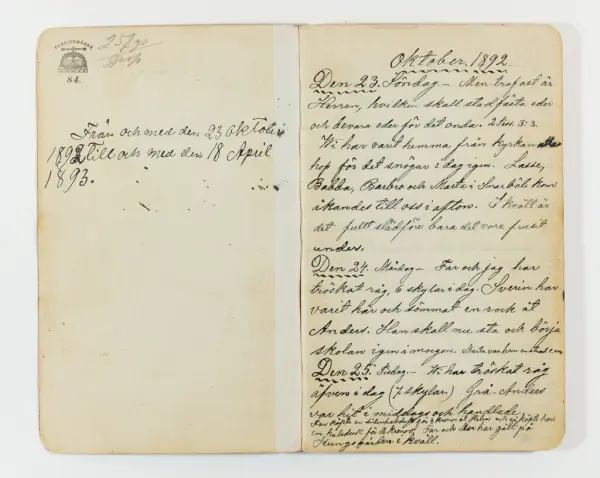 FABRIKSMÄRKE
84.
257 90
Från och med den 23 Oktober
1892 Till och med den 18 April
1893.
Oktober. 1892.
Den 23. Söndag. – Men trofast är
Herren, hvilken skall stadfästa eder
och bevara eder för det onda. 2 Tess. 3:3.
Wi har varit hemma från kyrkan alle
hop för det snögar i dag igen. Lasse,
Babba, Barbro och Marta i Snarbäle kom
åkandes till oss i afton. I kväll är
det fullt slädföre bara det vore frusit
under.
Den 24. Måndag – Far och jag har
tröskat råg, 6 skylar i dag. Sverin har
varit här och sömmat en rock åt
Anders. Han skall nu sta och börja
skolan igen i morgon. Marta var hem
Den 25. Tisdag. – Wi har tröskat råg
äfven i dag (7 skylar.) Grå-Anders
var hit i middags och handlade.
Far köpte en för kronor åt och så köpte hon
en för kronor. Far och Mor har gått på
i kväll.